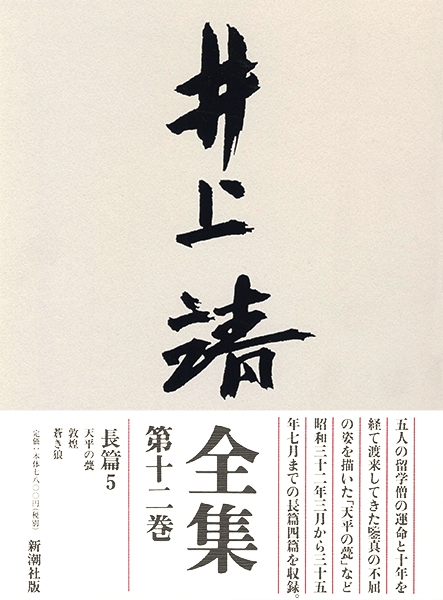 井上靖
全集
第十二巻
五人の留学僧の運命と十年を
経て渡来してきた鑒真の不屈
の姿を描いた「天平の甍」など
昭和三十二年三月から三十五
年七月までの長篇四篇を収録。
長篇5
天平の甍
敦煌
蒼き狼
定価:本体七八〇〇円(税別)
新潮社版